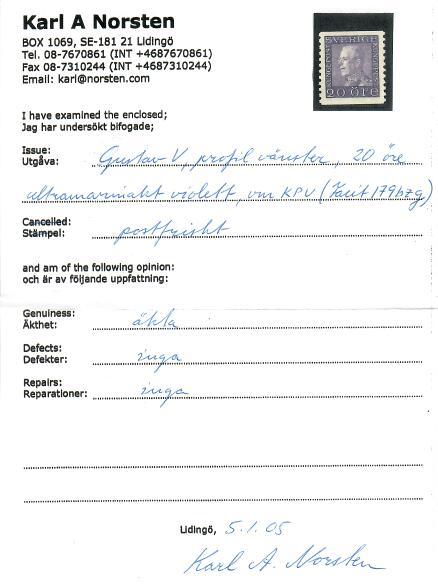 Karl A Norsten
BOX 1069, SE-181 21 Lidingö
Tel. 08-7670861 (INT +4687670861)
Fax 08-7310244 (INT +4687310244)
Email: karl@norsten.com
SVERIGE
20 ÖRE
I have examined the enclosed;
Jag har undersökt bifogade;
Issue:
Utgåva: Gustav V, profil vänster, 20 öre
ultramarinakt violett, vm KPV (Facit 179bz g)
Cancelled:
Stämpel: postfriskt
and am of the following opinion:
och är av följande uppfattning:
Genuiness:
Äkthet: äkta
Defects:
Defekter: inga
Repairs:
Reparationer: inga
Lidingö, 5.1.05
Karl A. Norsten